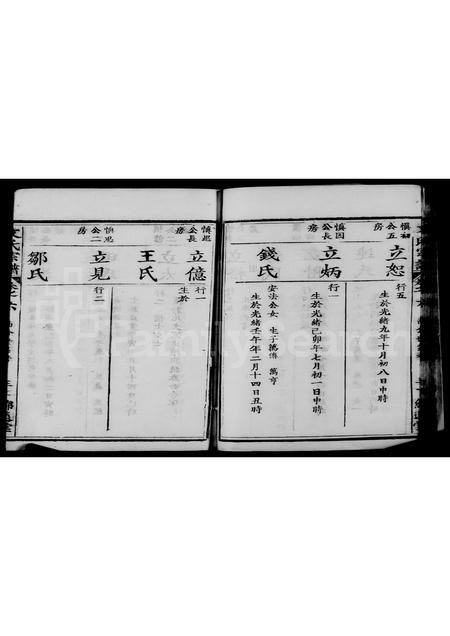 慎初公五房
立恕
行五
生於光緒九年十月初八日申時
慎因公長房
立炳
行一
生於光緒己卯年七月初一日申時
錢氏
安法公女 生子萬儐 萬亨
生於光緒壬午年二月十四日丑時
慎思公長房
立億
行一
生於
王氏
慎思公二房
立見
行二
鄒氏
FamilySearch